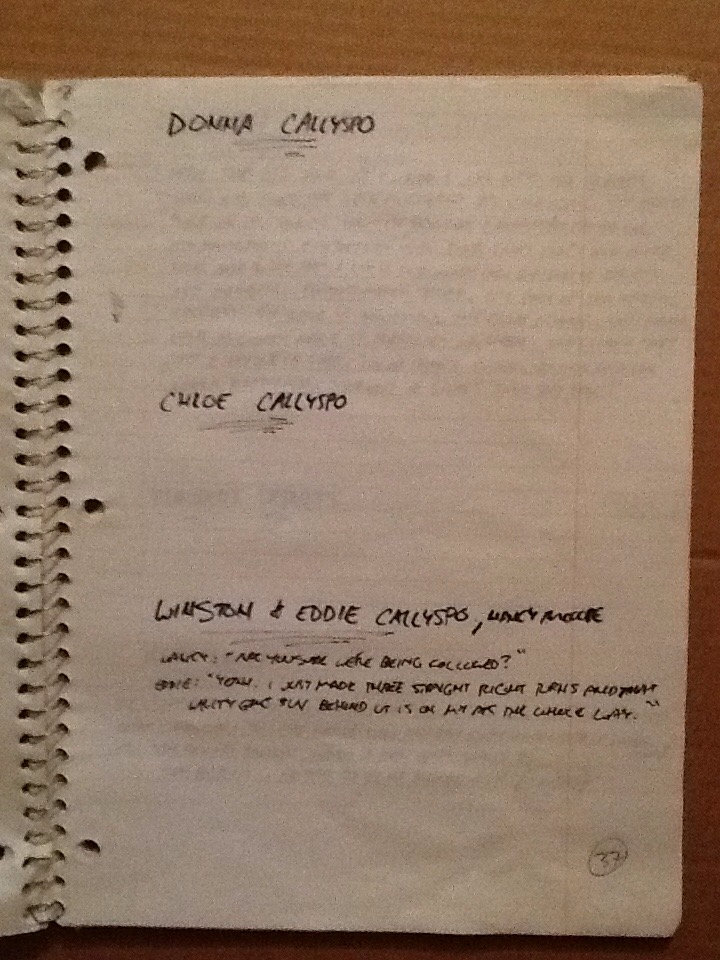 DONNA CALLYSPO
CHLOE CALLYSPO
WINSTON & EDDIE CALLYSPO, NANCY MOORE
NANCY: "ARE YOU SURE WE'RE BEING FOLLOWED?"
EDDIE: "YEAH. I JUST MADE THREE STRAIGHT RIGHT TURNS AND THAT
UTILITY SUV BEHIND US IS ON MY ASS THE WHOLE WAY."
37